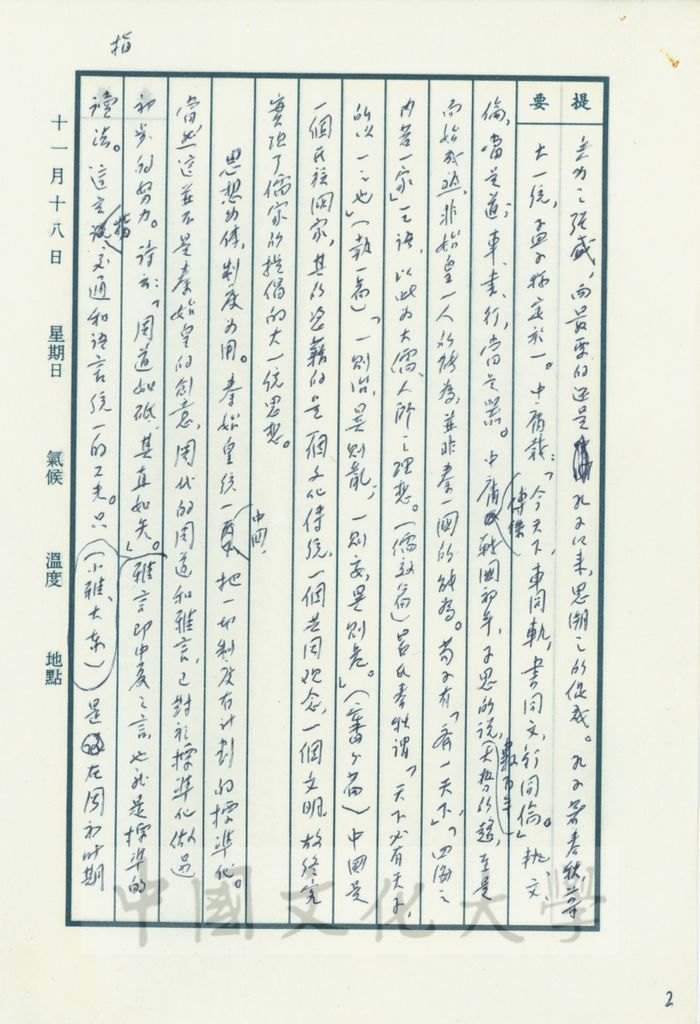 指
提
要
兵力之強盛，而最要的還是孔子以來，思潮之所促成。孔子著春秋，尊
大一統，孟子稱定於一。中庸載：「今天下，車同軌，書同文，行同倫。」軌、文、
倫，當是道；車、書、行，當是器。中庸傳係戰國初年，子思所說，大勢所趨，至是數百年
而始成熟，非始皇一人所能為，並非秦一國所能為。荀子有「齊一天下」，「四海之
內若一家」之語，以此為大儒人師之理想。（儒效篇）呂氏春秋謂「天下必有天子，
所以一之也」（執一篇）「一則治，異則亂，一則安，異則危。」（審分篇）中國是
一個民族國家，其所憑藉的是一個文化傳統，一個共同觀念，一個文明，故終究
實現了儒家所提倡的大一統思想。
思想為體，制度為用。秦始皇統一中國，把一切制度有計劃的標準化。
當然這並不是秦始皇的創意，周代的周道和雅言，已對於標準化做過
初步的努力。詩云：「周道如砥，其直如矢。」雅言即中夏之言，也就是標準的
讀法。這言指交通和語言統一的工夫。只（小雅、大東）是在周初時期
十一月十八日 星期日 氣候 溫度 地點
中國文化大學
2